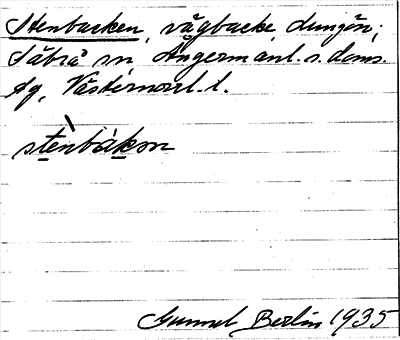 Stenbacken, vägbacke, Lungön;
Säbrå sn, Ångermanl. s. doms.
fg, Västernorrl. l.
stènbàkɐn
Gunnel Berlin 1935